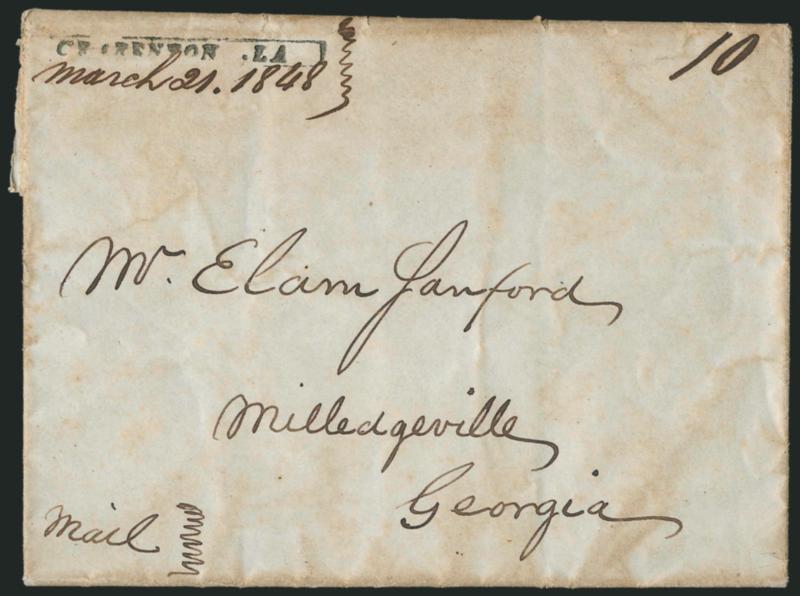 CHARENTON .LA
March 21. 1848
10
Mr. Elam Sanford
Milledgeville
Georgia
Mail